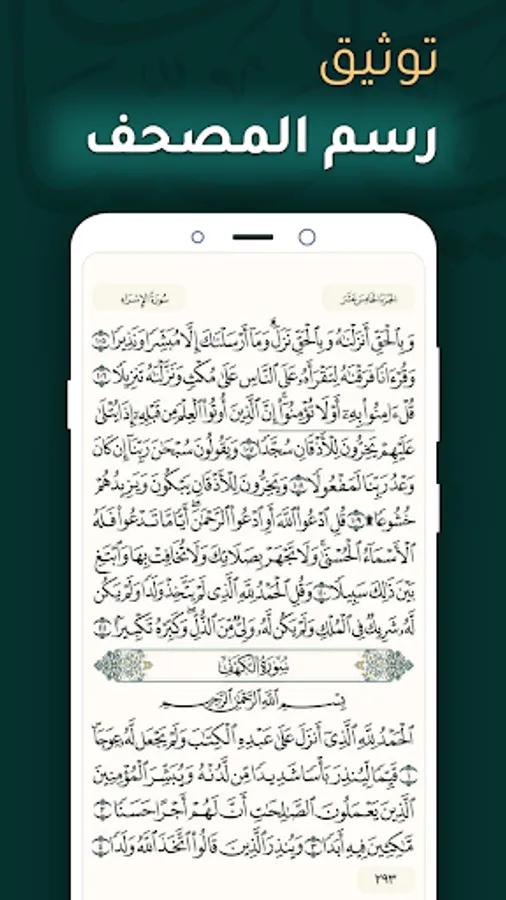 توثيق
رسم المصحف
الجزء الخامس عشر
سورة الإسراء
وَبِٱلْحَقِّ أَنزَلْنَٰهُ وَبِٱلْحَقِّ نَزَلَۗ وَمَآ أَرْسَلْنَٰكَ إِلَّا مُبَشِّرًا وَنَذِيرًا ١٠٥
وَقُرْءَانًا فَرَقْنَٰهُ لِتَقْرَأَهُۥ عَلَى ٱلنَّاسِ عَلَىٰ مُكْثٍ وَنَزَّلْنَٰهُ تَنزِيلًا ١٠٦
قُلْ ءَامِنُوا۟ بِهِۦٓ أَوْ لَا تُؤْمِنُوٓا۟ۚ إِنَّ ٱلَّذِينَ أُوتُوا۟ ٱلْعِلْمَ مِن قَبْلِهِۦٓ إِذَا يُتْلَىٰ
عَلَيْهِمْ يَخِرُّونَ لِلْأَذْقَانِ سُجَّدًا ١٠٧ وَيَقُولُونَ سُبْحَٰنَ رَبِّنَآ إِن كَانَ
وَعْدُ رَبِّنَا لَمَفْعُولًا ١٠٨ وَيَخِرُّونَ لِلْأَذْقَانِ يَبْكُونَ وَيَزِيدُهُمْ
خُشُوعًا ۩ ١٠٩ قُلِ ٱدْعُوا۟ ٱللَّهَ أَوِ ٱدْعُوا۟ ٱلرَّحْمَٰنَۖ أَيًّا مَّا تَدْعُوا۟ فَلَهُ
ٱلْأَسْمَآءُ ٱلْحُسْنَىٰۚ وَلَا تَجْهَرْ بِصَلَاتِكَ وَلَا تُخَافِتْ بِهَا وَٱبْتَغِ
بَيْنَ ذَٰلِكَ سَبِيلًا ١١٠ وَقُلِ ٱلْحَمْدُ لِلَّهِ ٱلَّذِى لَمْ يَتَّخِذْ وَلَدًا وَلَمْ يَكُن
لَّهُۥ شَرِيكٌ فِى ٱلْمُلْكِ وَلَمْ يَكُن لَّهُۥ وَلِىٌّ مِّنَ ٱلذُّلِّۖ وَكَبِّرْهُ تَكْبِيرًۢا ١١١
سُورَةُ الكَهْفِ
بِسْمِ ٱللَّهِ ٱلرَّحْمَٰنِ ٱلرَّحِيمِ
ٱلْحَمْدُ لِلَّهِ ٱلَّذِىٓ أَنزَلَ عَلَىٰ عَبْدِهِ ٱلْكِتَٰبَ وَلَمْ يَجْعَل لَّهُۥ عِوَجَاۜ
١ قَيِّمًا لِّيُنذِرَ بَأْسًا شَدِيدًا مِّن لَّدُنْهُ وَيُبَشِّرَ ٱلْمُؤْمِنِينَ
ٱلَّذِينَ يَعْمَلُونَ ٱلصَّٰلِحَٰتِ أَنَّ لَهُمْ أَجْرًا حَسَنًا ٢
مَّٰكِثِينَ فِيهِ أَبَدًا ٣ وَيُنذِرَ ٱلَّذِينَ قَالُوا۟ ٱتَّخَذَ ٱللَّهُ وَلَدًا ٤
٢٩٣